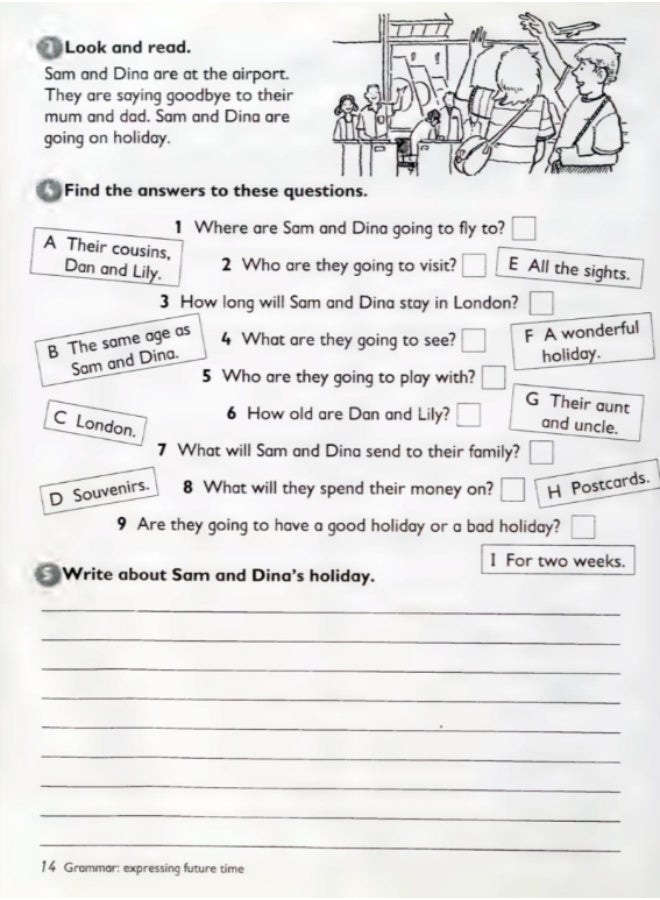 Look and read.
Sam and Dina are at the airport.
They are saying goodbye to their
mum and dad. Sam and Dina are
going on holiday.
Find the answers to these questions.
1 Where are Sam and Dina going to fly to?
A Their cousins,
Dan and Lily.
2 Who are they going to visit?
E All the sights.
3 How long will Sam and Dina stay in London?
B The same age as
Sam and Dina.
4 What are they going to see?
F A wonderful
holiday.
5 Who are they going to play with?
C London.
6 How old are Dan and Lily?
G Their aunt
and uncle.
7 What will Sam and Dina send to their family?
D Souvenirs.
8 What will they spend their money on?
H Postcards.
9 Are they going to have a good holiday or a bad holiday?
I For two weeks.
5 Write about Sam and Dina's holiday.
14 Grammar: expressing future time